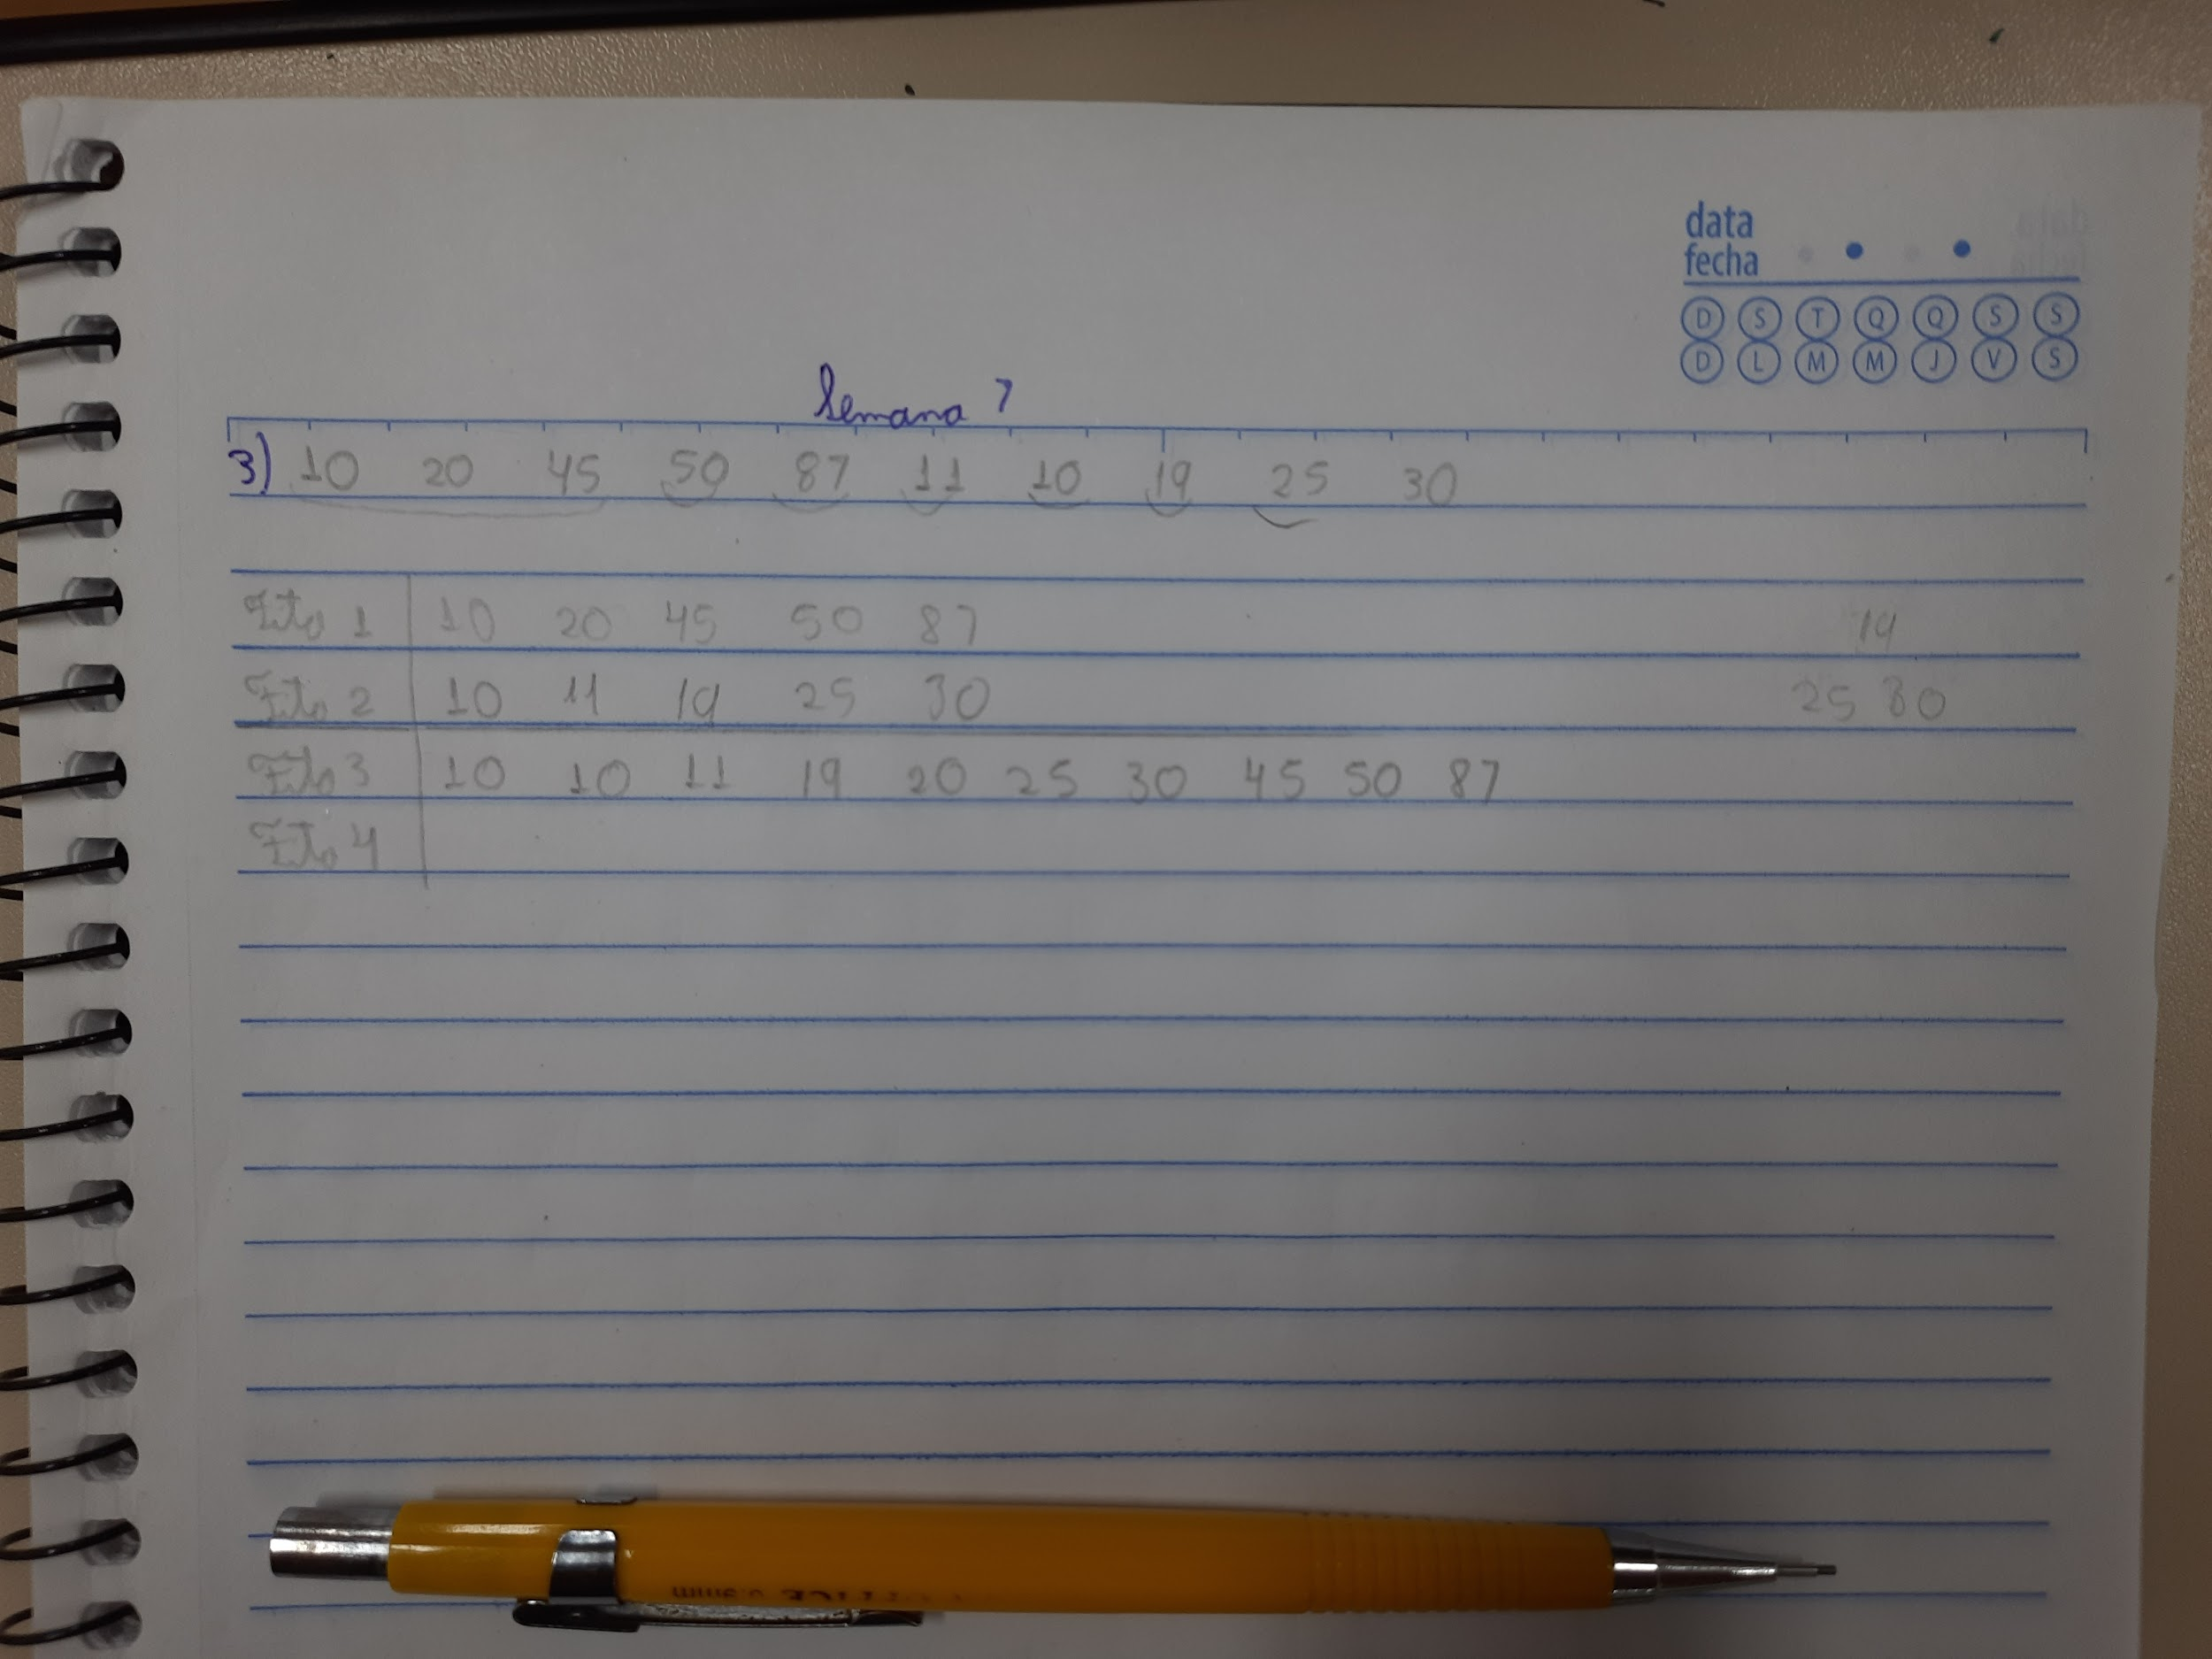 data
fecha
D S T Q Q S S
D L M M J V S
Semana 7
3) 10 20 45 50 87 11 10 19 25 30
Fita 1 10 20 45 50 87 19
Fita 2 10 11 19 25 30 25 30
Fita 3 10 10 11 19 20 25 30 45 50 87
Fita 4